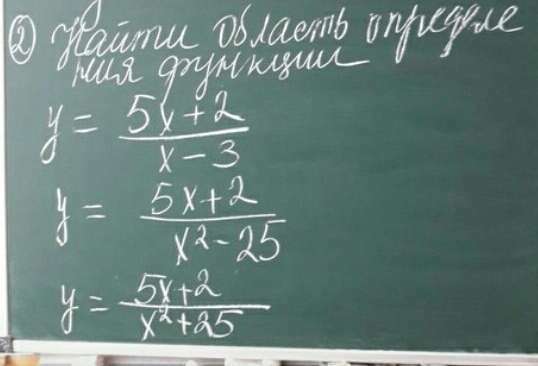 ② Найти область определе
ния функции
y = (5x+2)/(x-3)
y = (5x+2)/(x²-25)
y = (5x+2)/(x²+25)